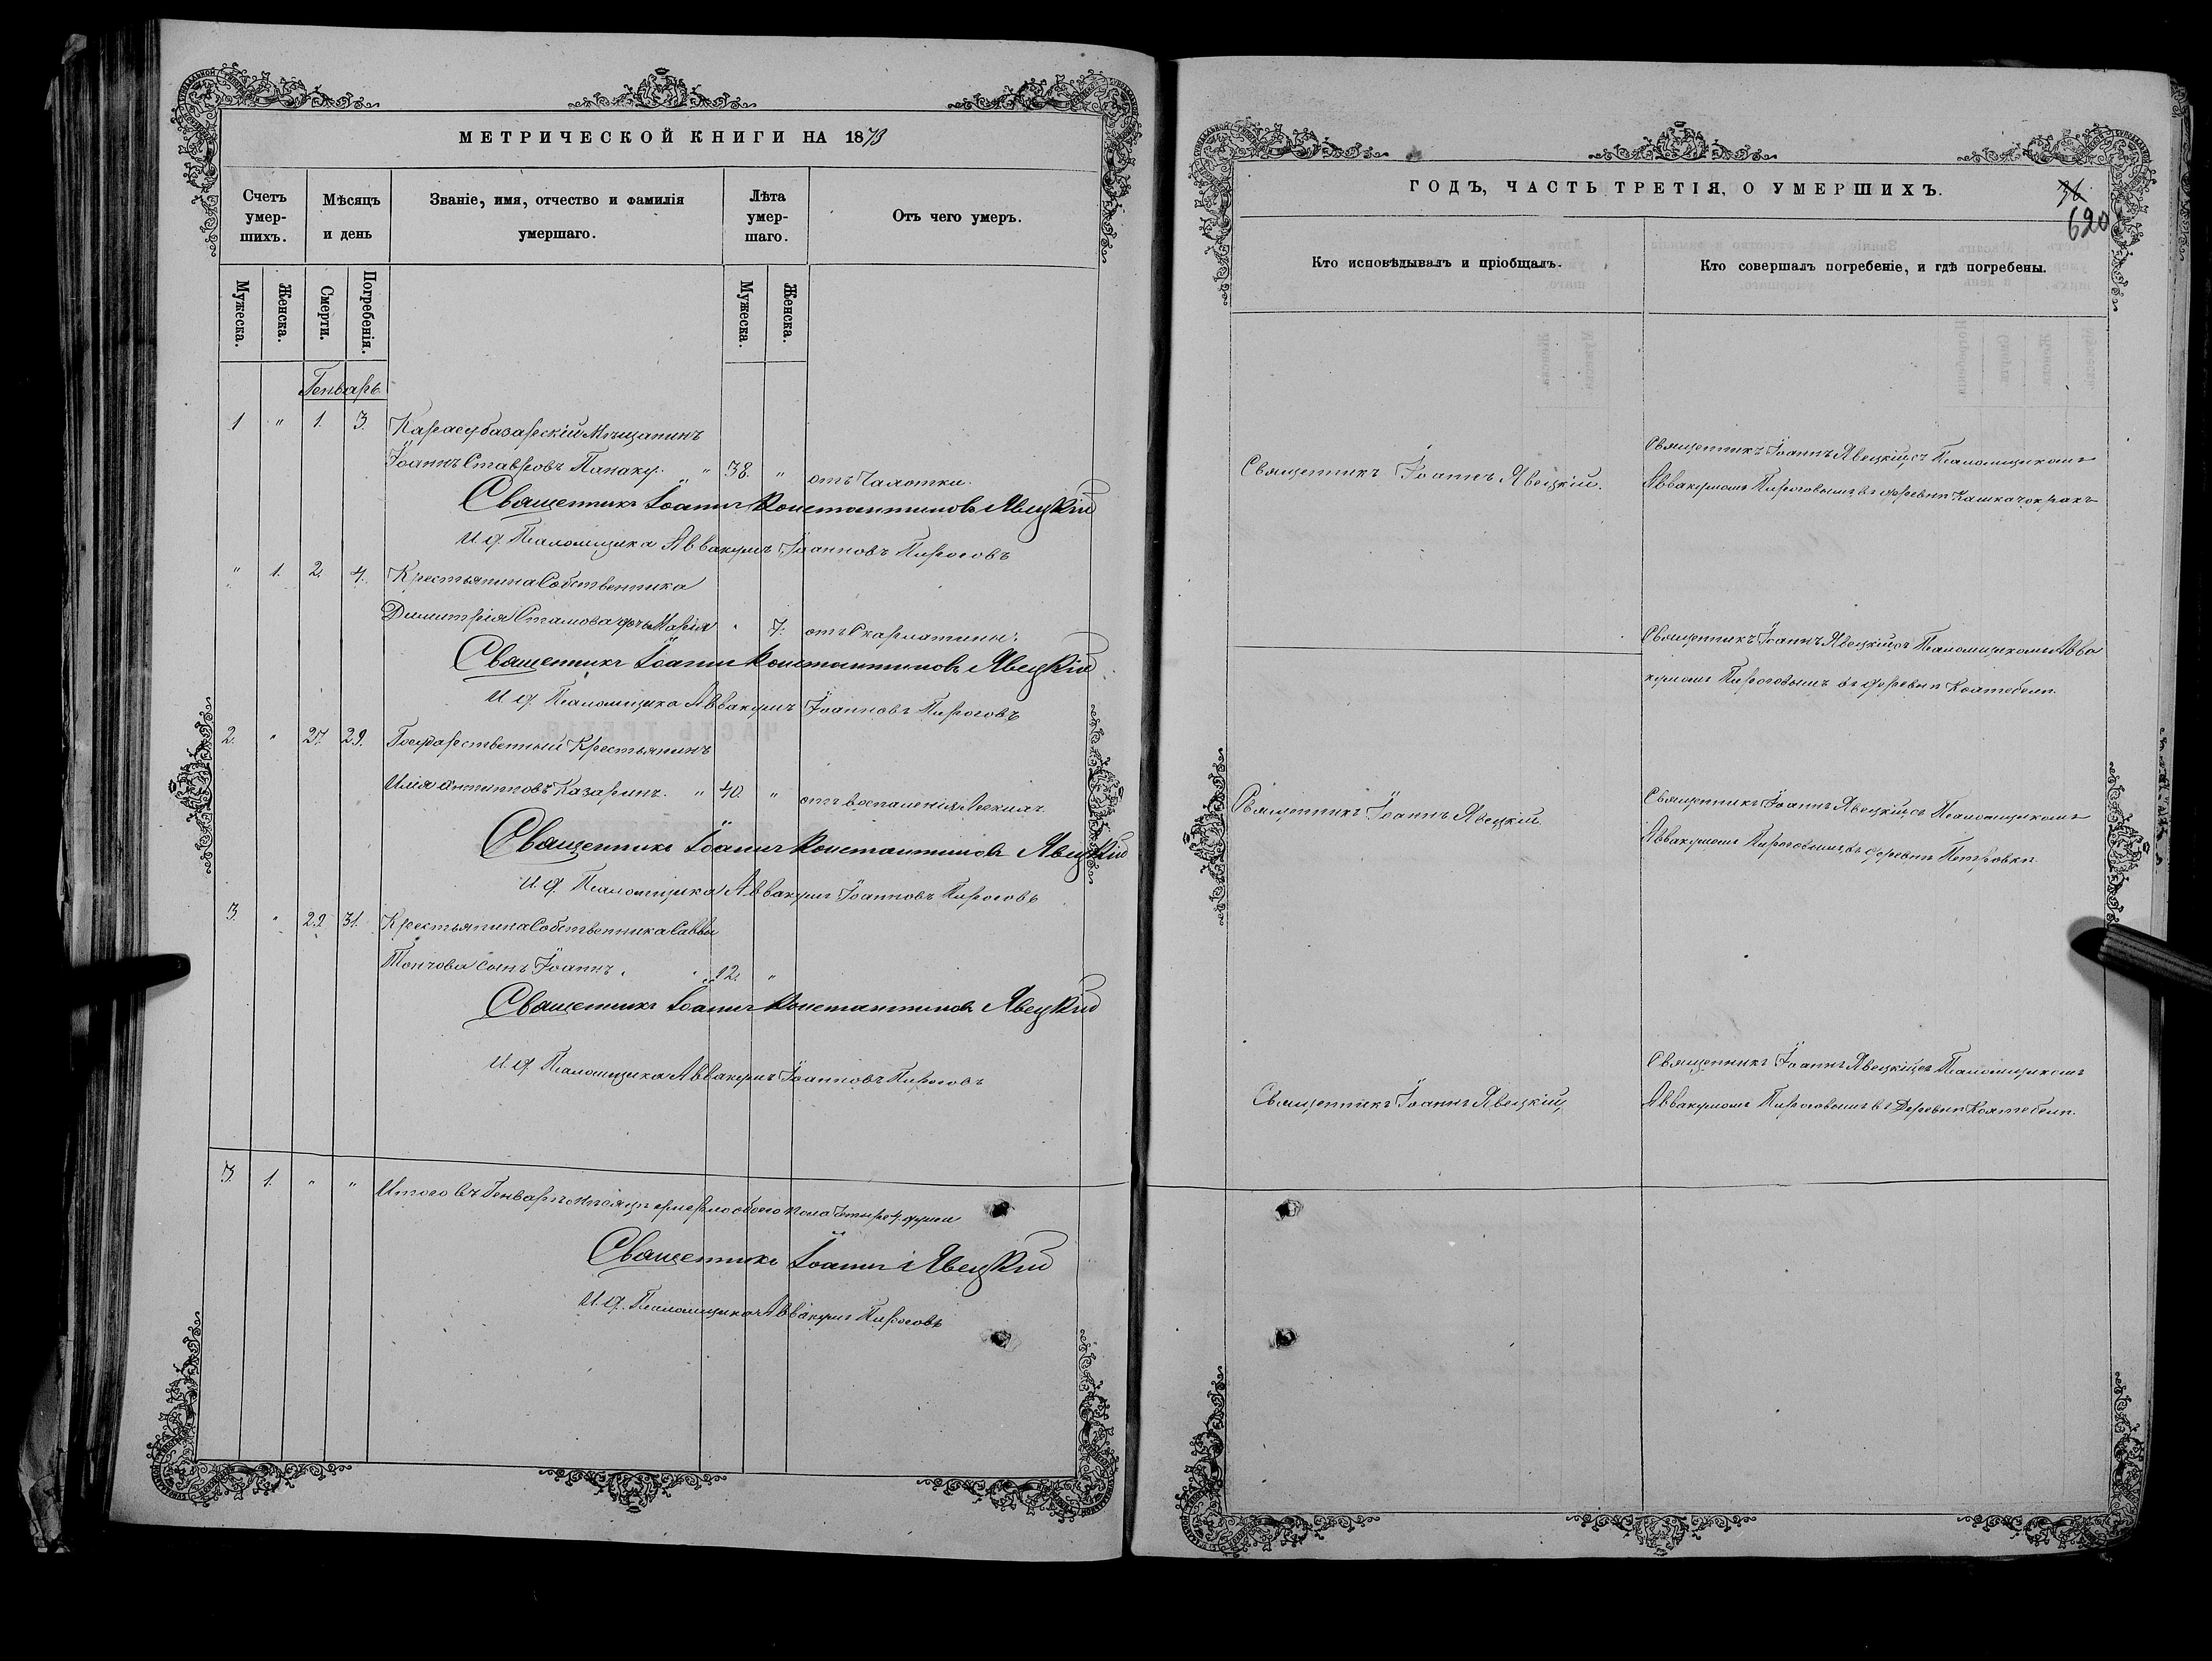 МЕТРИЧЕСКОЙ КНИГИ НА 1873
Счетъ умер-шихъ.
Мѣсяцъ и день
Званіе, имя, отчество и фамилія умершаго.
Лѣта умер-шаго.
Отъ чего умеръ.
Мужеска.
Женска.
Смерти.
Погребенія.
Мужеска.
Женска.
Генварь
1 " 1. 3. Карасубазарскій Мѣщанинъ
Іоаннъ Ставровъ Папаку. " 38. " отъ Чахотки.
Священникъ Іоаннъ Константиновъ Явецкій
И. д. Псаломщика Аввакумъ Іоанновъ Пироговъ
" 1. 2. 4. Крестьянина Собственника
Димитрія Стамова дочь Марія " 7. отъ Скарлатины.
Священникъ Іоаннъ Константиновъ Явецкій
И. д. Псаломщика Аввакумъ Іоанновъ Пироговъ
2. " 27. 29. Государственный Крестьянинъ
Илія Антиповъ Казаринъ. " 40. " отъ воспаленія легкихъ.
Священникъ Іоаннъ Константиновъ Явецкій
И. д. Псаломщика Аввакумъ Іоанновъ Пироговъ
3. " 29 31. Крестьянина Собственника Саввы
Топчова сынъ Іоаннъ. " 12. "
Священникъ Іоаннъ Константиновъ Явецкій
И. д. Псаломщика Аввакумъ Іоанновъ Пироговъ
3. 1. " " Итого въ Генварѣ мѣсяцѣ умерло обоего пола Четыре 4. души
Священникъ Іоаннъ Явецкій
И. д. Псаломщика Аввакумъ Пироговъ
ГОДЪ, ЧАСТЬ ТРЕТІЯ, О УМЕРШИХЪ.
620
Кто исповѣдывалъ и пріобщалъ.
Кто совершалъ погребеніе, и гдѣ погребены.
Священникъ Іоаннъ Явецкій.
Священникъ Іоаннъ Явецкій съ Псаломщикомъ
Аввакумомъ Пироговымъ, въ деревнѣ
Священникъ Іоаннъ Явецкій съ Псаломщикомъ Авва
кумомъ Пироговымъ въ деревнѣ Коктебели.
Священникъ Іоаннъ Явецкій
Священникъ Іоаннъ Явецкій съ Псаломщикомъ
Аввакумомъ Пироговымъ, въ деревнѣ Петровкѣ.
Священникъ Іоаннъ Явецкій
Священникъ Іоаннъ Явецкій съ Псаломщикомъ
Аввакумомъ Пироговымъ въ Деревнѣ Коктебели.